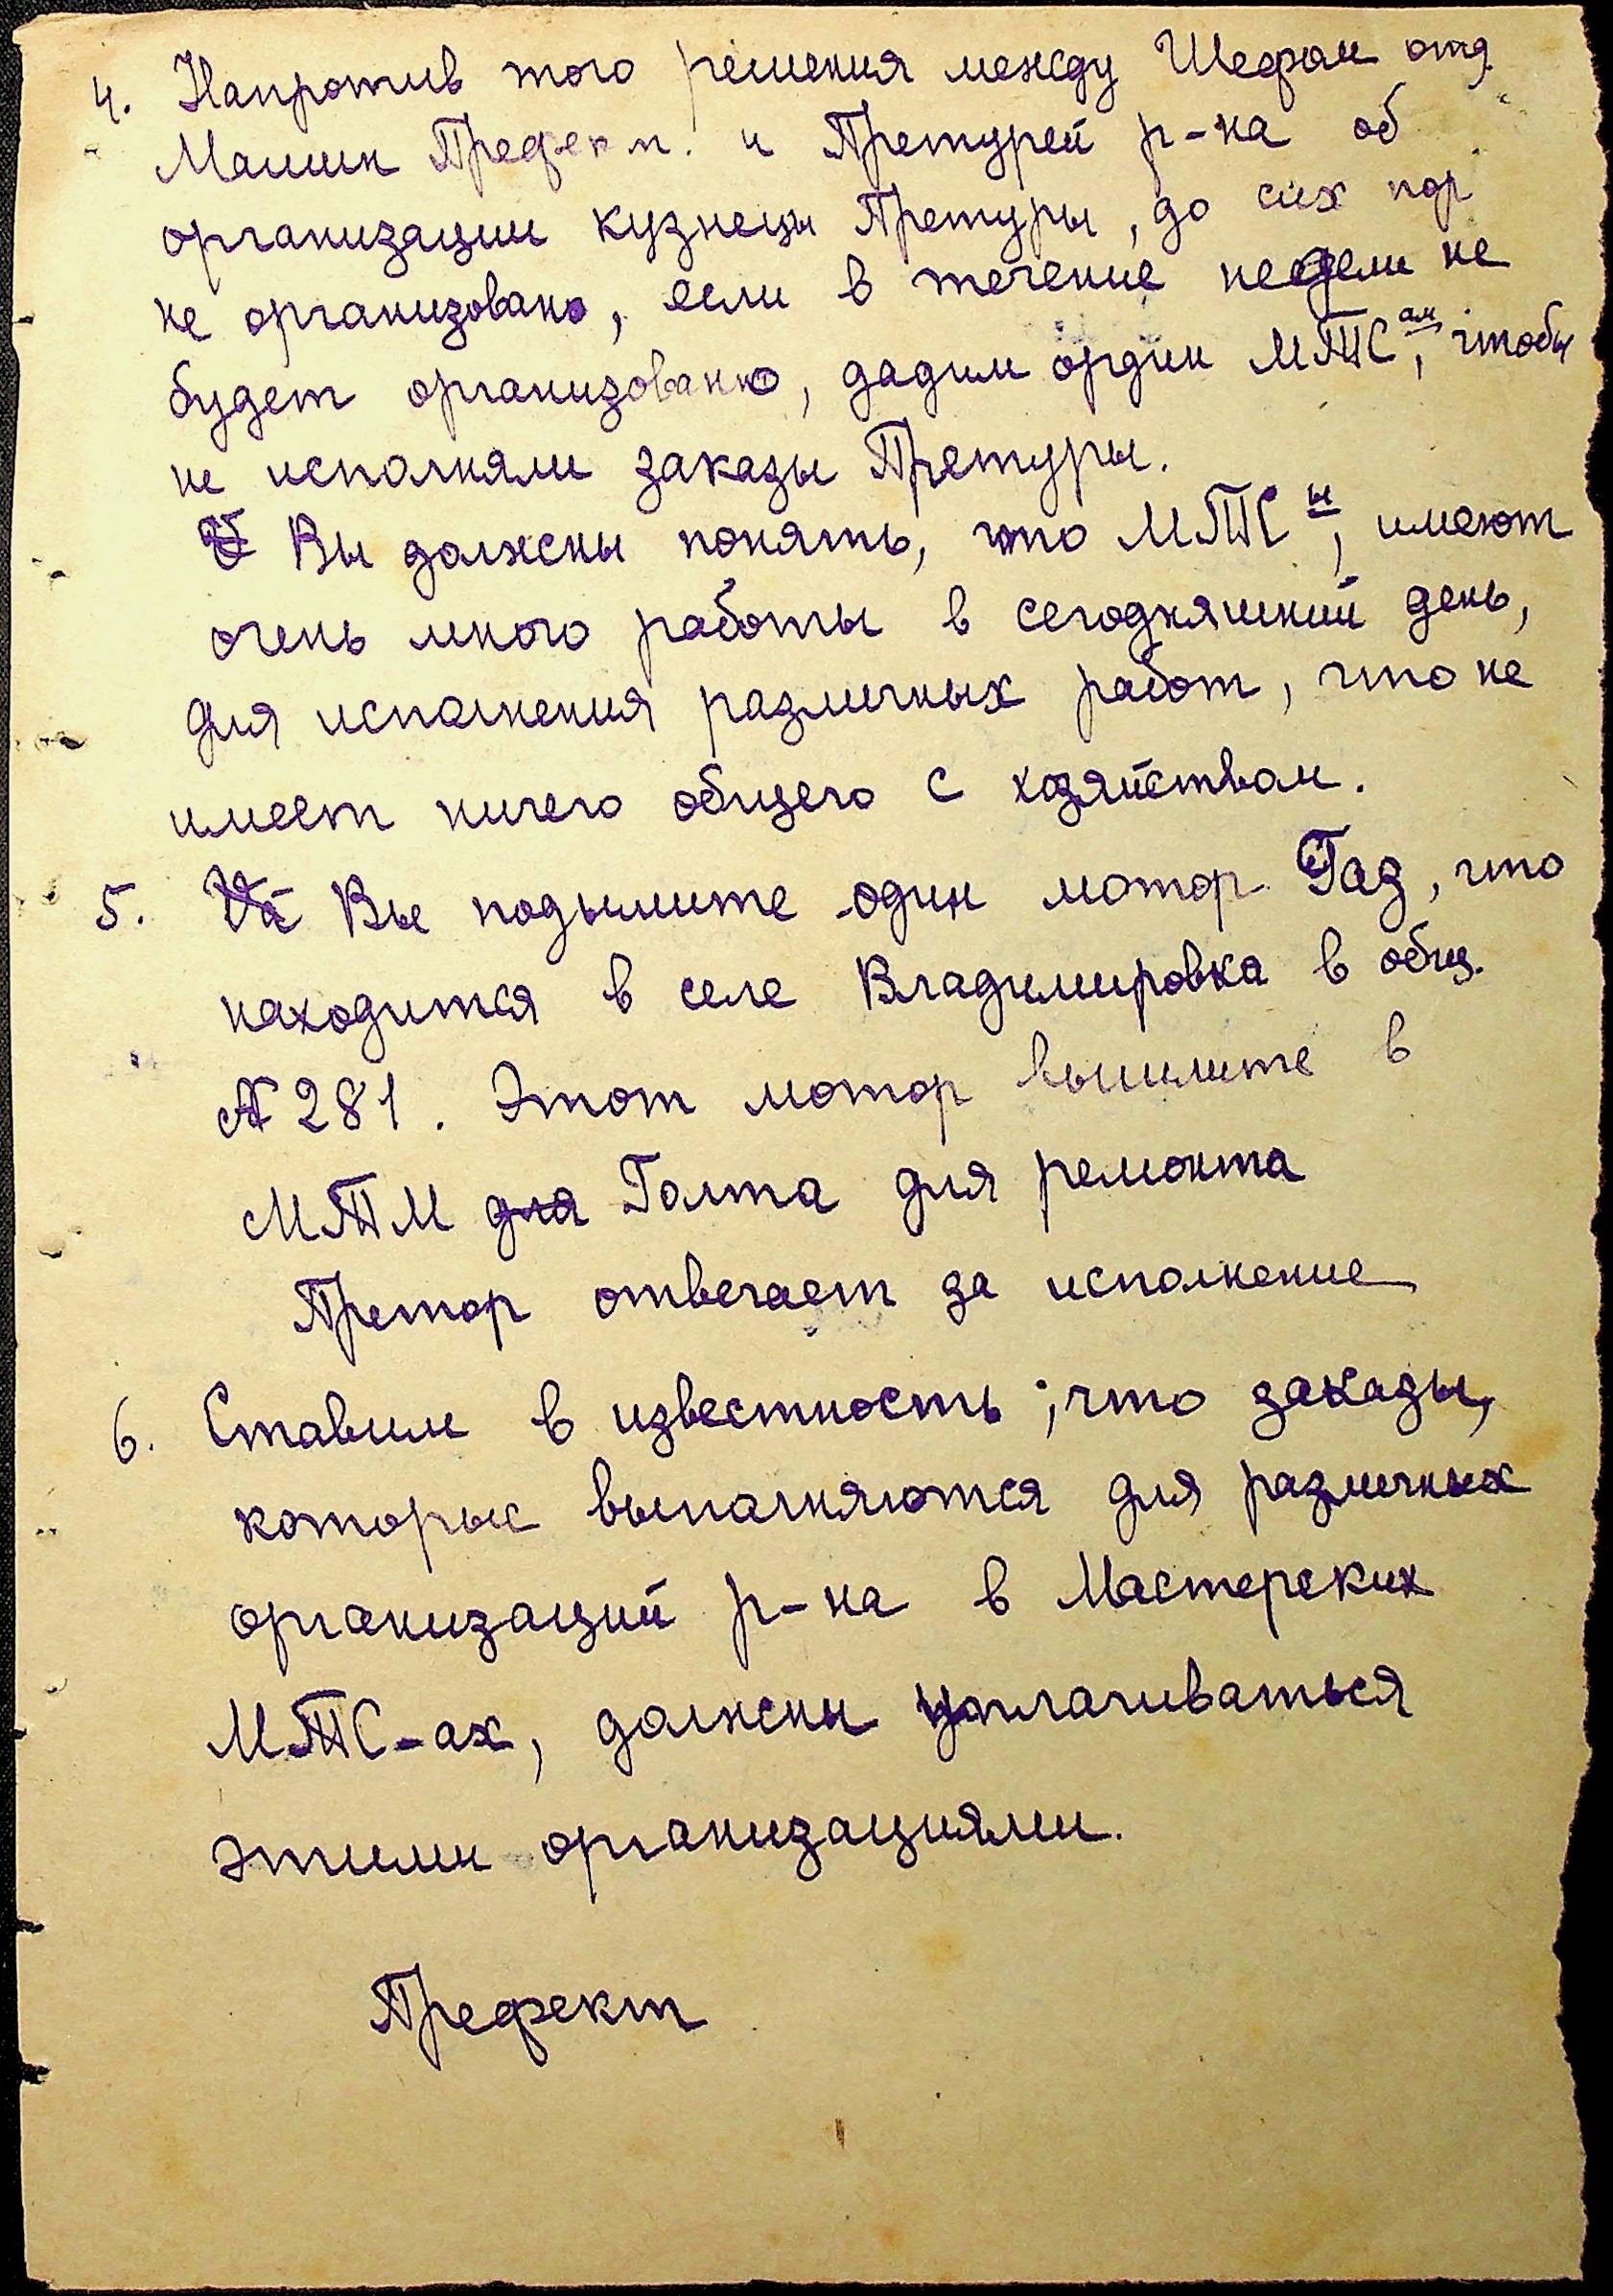 4. Напротив того решения между Шефом отд.
Машин Префект. и Претурей р-на об
организации кузнецы Претуры, до сих пор
не организовано, если в течение недели не
будет организованно, дадим ордин МТСам, чтобы
не исполняли заказы Претуры.
Вы должны понять, что МТСы, имеют
очень много работы в сегодняшний день,
для исполнения различных работ, что не
имеет ничего общего с хозяйством.
5. Вы подымите один мотор Газ, что
находится в селе Владимировка в общ.
№ 281. Этот мотор вышлите в
МТМ для Голта для ремонта
Претор отвечает за исполнение
6. Ставим в известность, что заказы,
которые выполняются для различных
организаций р-на в Мастерских
МТС-ах, должны уплачиваться
этими организациями.
Префект